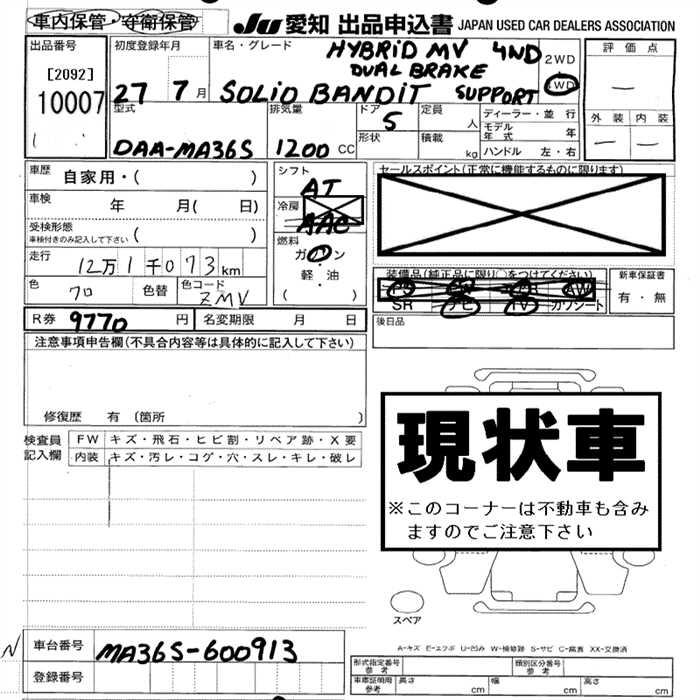 車内保管・守衛保管
Ju 愛知 出品申込書 JAPAN USED CAR DEALERS ASSOCIATION
出品番号 初度登録年月 車名・グレード 評価点
[2092]
10007
27 7 月
HYBRID MV 4WD
DUAL BRAKE
SOLIO BANDIT SUPPORT
2WD
4WD
外装 内装
型式 排気量 ドア 定員 ディーラー・並行
DAA-MA36S 1200 CC 5 人
モデル年式 年
形状 積載 kg ハンドル 左・右
車歴 自家用・( )
シフト AT
セールスポイント(正常に機能するものに限ります)
車検 年 月( 日)
冷房 AAC
受検形態
車検付きのみ記入して下さい ( )
燃料 ガソリン・軽・油 ( )
走行 12万1千073km
装備品(純正品に限り○をつけてください) 新車保証書
AW
SR ナビ TV カワシート 有・無
色 クロ 色替 色コード ZMV
R券 9770 円 名変期限 月 日
後日品
注意事項申告欄(不具合内容等は具体的に記入して下さい)
修復歴 有 (箇所 )
現状車
※このコーナーは不動車も含み
ますのでご注意下さい
検査員記入欄
FW キズ・飛石・ヒビ割・リペア跡・X要
内装 キズ・汚レ・コゲ・穴・スレ・キレ・破レ
スペア
A-キズ E-エクボ U-凹み W-補修跡 S-サビ C-腐食 XX-交換済
車台番号 MA36S-600913
登録番号
形式指定番号 参考 類別区分番号 参考
車庫証明用 参考 長さ cm 幅 cm 高さ cm